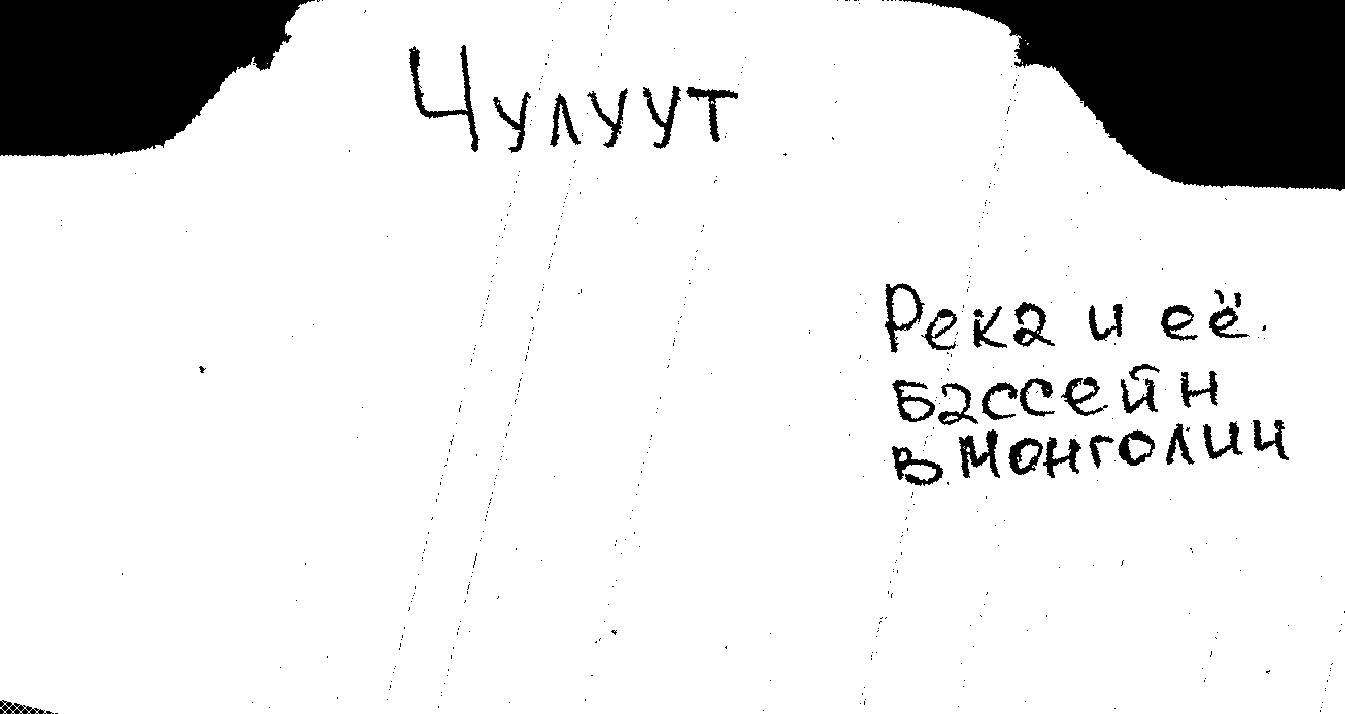 Чулуут
Река и её
бассейн
в Монголии